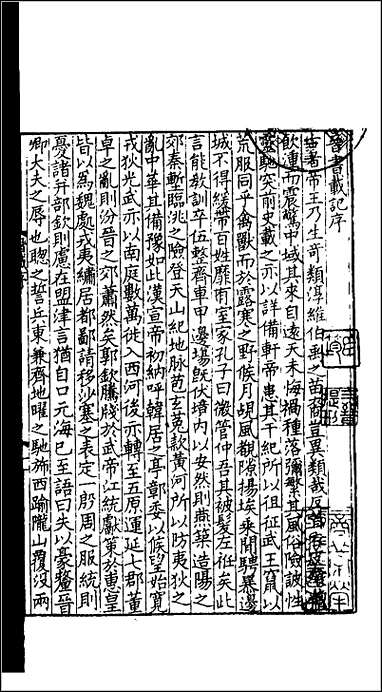 晉書載記序
古者帝王乃生奇類淳維伯禹之苗裔豈異類哉反
飲湩而震驚中域其來自遠天未悔禍種落彌繁其風俗險詖性
靈馳突前史載之亦以詳備軒帝患其干紀所以徂征武王竄以
荒服同乎禽獸而於露寒之野候月覘風覩隙揚埃乘間騁暴邊
城不得緩帶百姓靡有室家孔子曰微管仲吾其被髮左衽矣此
言能教訓卒伍整齊車甲邊塲旣伏境内以安然則燕築造陽之
郊秦塹臨洮之險登天山紀地脉苞玄菟款黃河所以防夷狄之
亂中華其備豫如此漢宣帝初納呼韓居之亭鄣委以候望始寛
戎狄光武亦以南庭數萬徙入西河後亦轉至五原連延七郡董
卓之亂則汾晉之郊蕭然矣郭欽騰牋於武帝江統獻策於惠皇
皆以爲魏處戎夷繡居都鄙請移沙塞之表定一殷周之服統則
憂諸幷部欽則慮在盟津言猶自口元海已至語曰失以豪釐晉
卿大夫之辱也聦之誓兵東兼齊地曜之馳斾西踰隴山覆没兩